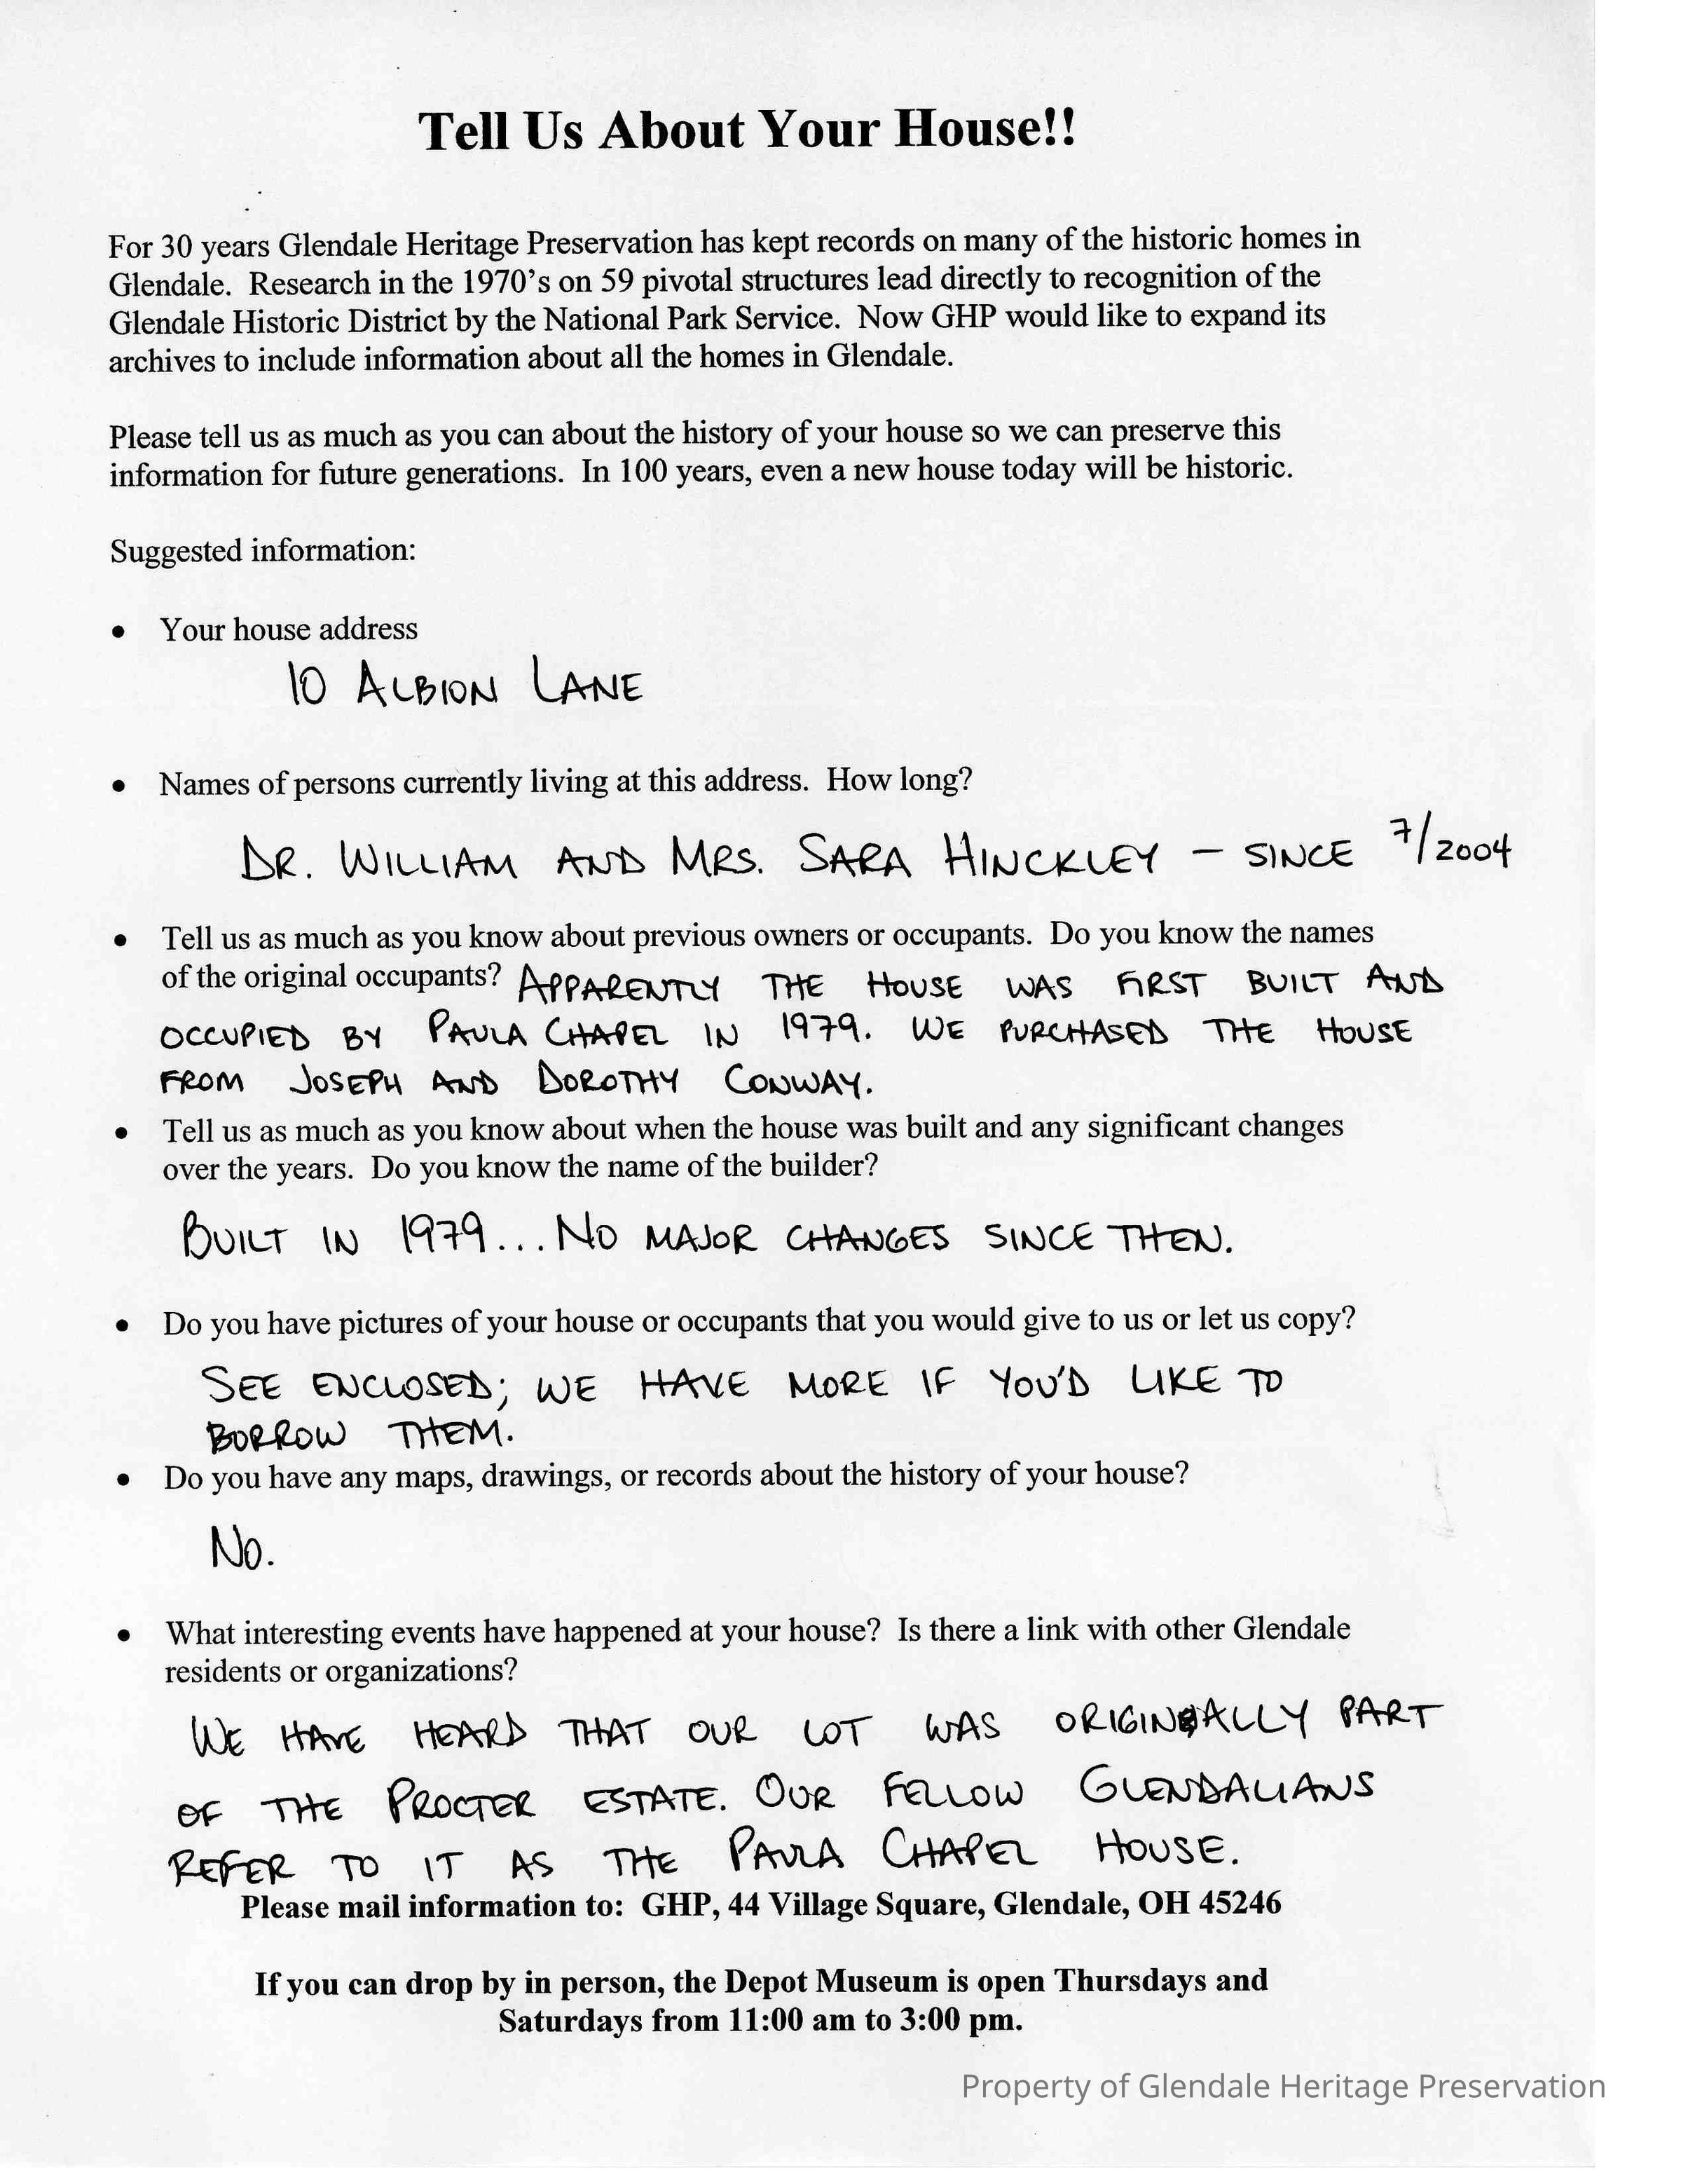 Tell Us About Your House!!
For 30 years Glendale Heritage Preservation has kept records on many of the historic homes in
Glendale. Research in the 1970's on 59 pivotal structures lead directly to recognition of the
Glendale Historic District by the National Park Service. Now GHP would like to expand its
archives to include information about all the homes in Glendale.
Please tell us as much as you can about the history of your house so we can preserve this
information for future generations. In 100 years, even a new house today will be historic.
Suggested information:
• Your house address
10 ALBION LANE
• Names of persons currently living at this address. How long?
DR. WILLIAM AND MRS. SARA HINCKLEY – SINCE 7/2004
• Tell us as much as you know about previous owners or occupants. Do you know the names
of the original occupants? APPARENTLY THE HOUSE WAS FIRST BUILT AND
OCCUPIED BY PAULA CHAPEL IN 1979. WE PURCHASED THE HOUSE
FROM JOSEPH AND DOROTHY CONWAY.
• Tell us as much as you know about when the house was built and any significant changes
over the years. Do you know the name of the builder?
BUILT IN 1979... NO MAJOR CHANGES SINCE THEN.
• Do you have pictures of your house or occupants that you would give to us or let us copy?
SEE ENCLOSED; WE HAVE MORE IF YOU'D LIKE TO
BORROW THEM.
• Do you have any maps, drawings, or records about the history of your house?
NO.
• What interesting events have happened at your house? Is there a link with other Glendale
residents or organizations?
WE HAVE HEARD THAT OUR LOT WAS ORIGINALLY PART
OF THE PROCTER ESTATE. OUR FELLOW GLENDALIANS
REFER TO IT AS THE PAULA CHAPEL HOUSE.
Please mail information to: GHP, 44 Village Square, Glendale, OH 45246
If you can drop by in person, the Depot Museum is open Thursdays and
Saturdays from 11:00 am to 3:00 pm.
Property of Glendale Heritage Preservation